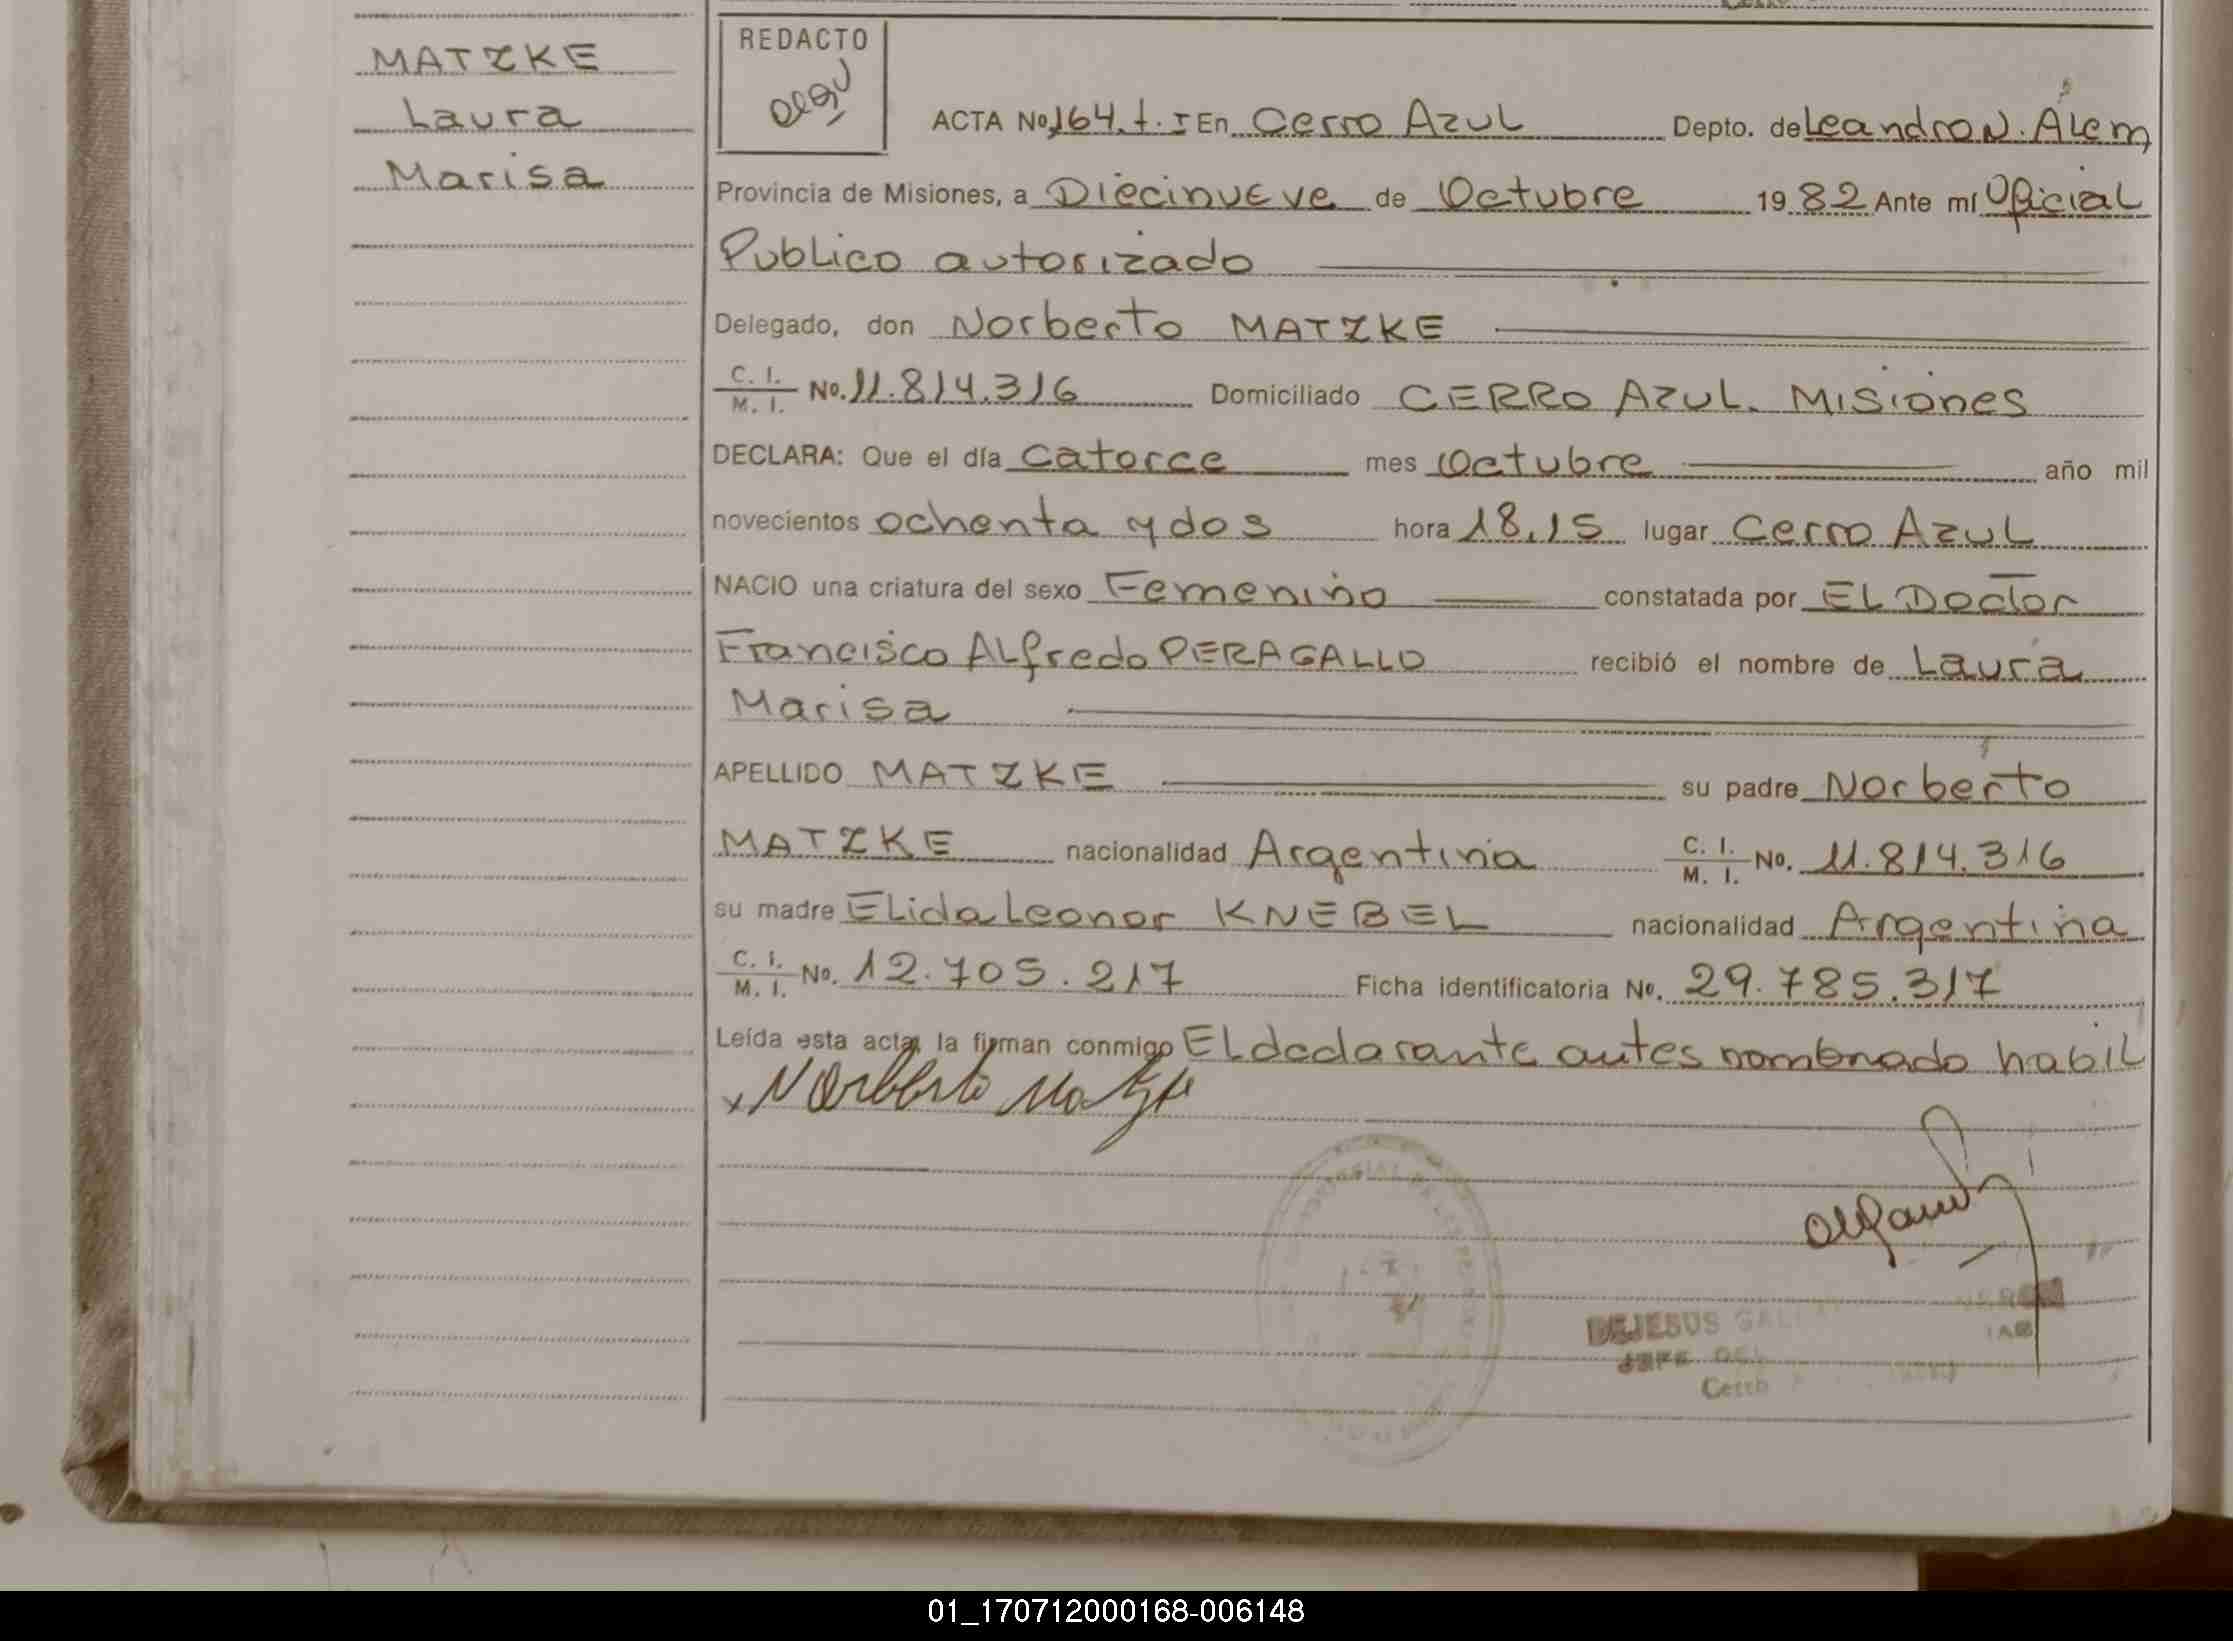 MATZKE
Laura
Marisa
REDACTO
ACTA No 164. t. I En Cerro Azul Depto. de Leandro N. Alem
Provincia de Misiones, a Diecinueve de Octubre 1982 Ante mí Oficial
Publico autorizado
Delegado, don Norberto MATZKE
C. I. / M. I. No. 11.814.316 Domiciliado CERRO AZUL. MISIONES
DECLARA: Que el día catorce mes Octubre año mil
novecientos ochenta y dos hora 18,15 lugar Cerro Azul
NACIO una criatura del sexo Femenino constatada por El Doctor
Francisco Alfredo PERAGALLO recibió el nombre de Laura
Marisa
APELLIDO MATZKE su padre Norberto
MATZKE nacionalidad Argentina C. I. / M. I. No. 11.814.316
su madre Elida Leonor KNEBEL nacionalidad Argentina
C. I. / M. I. No. 12.705.217 Ficha identificatoria No. 29.785.317
Leída esta acta, la firman conmigo El declarante antes nombrado habil
x Norberto Matzke
DEJESUS
JEFE DEL
Cerro
01_170712000168-006148